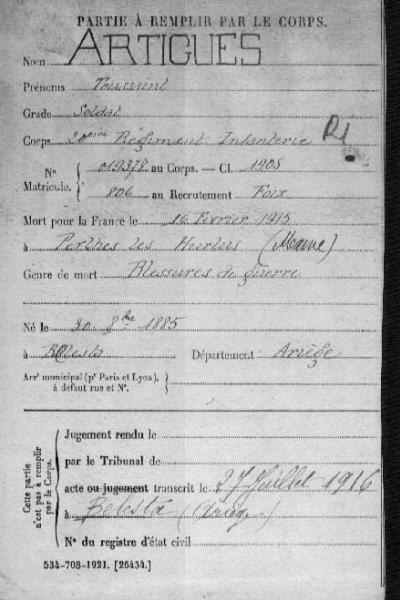 PARTIE À REMPLIR PAR LE CORPS.
Nom ARTIGUES
Prénoms Toussaint
Grade Soldat
Corps 20ème Régiment Infanterie RI
N° Matricule. { 019378 au Corps. — Cl. 1905
806 au Recrutement Foix
Mort pour la France le 16 Février 1915
à Perthes les Hurlus (Marne)
Genre de mort Blessures de guerre
Né le 30 8bre 1885
à Bélesta Département Ariège
Arrt municipal (pr Paris et Lyon), à défaut rue et N°. }
Cette partie n'est pas à remplir par le Corps.
Jugement rendu le
par le Tribunal de
acte ou jugement transcrit le 27 Juillet 1916
à Belesta (Arièg.)
N° du registre d'état civil
534-708-1921. [26434.]